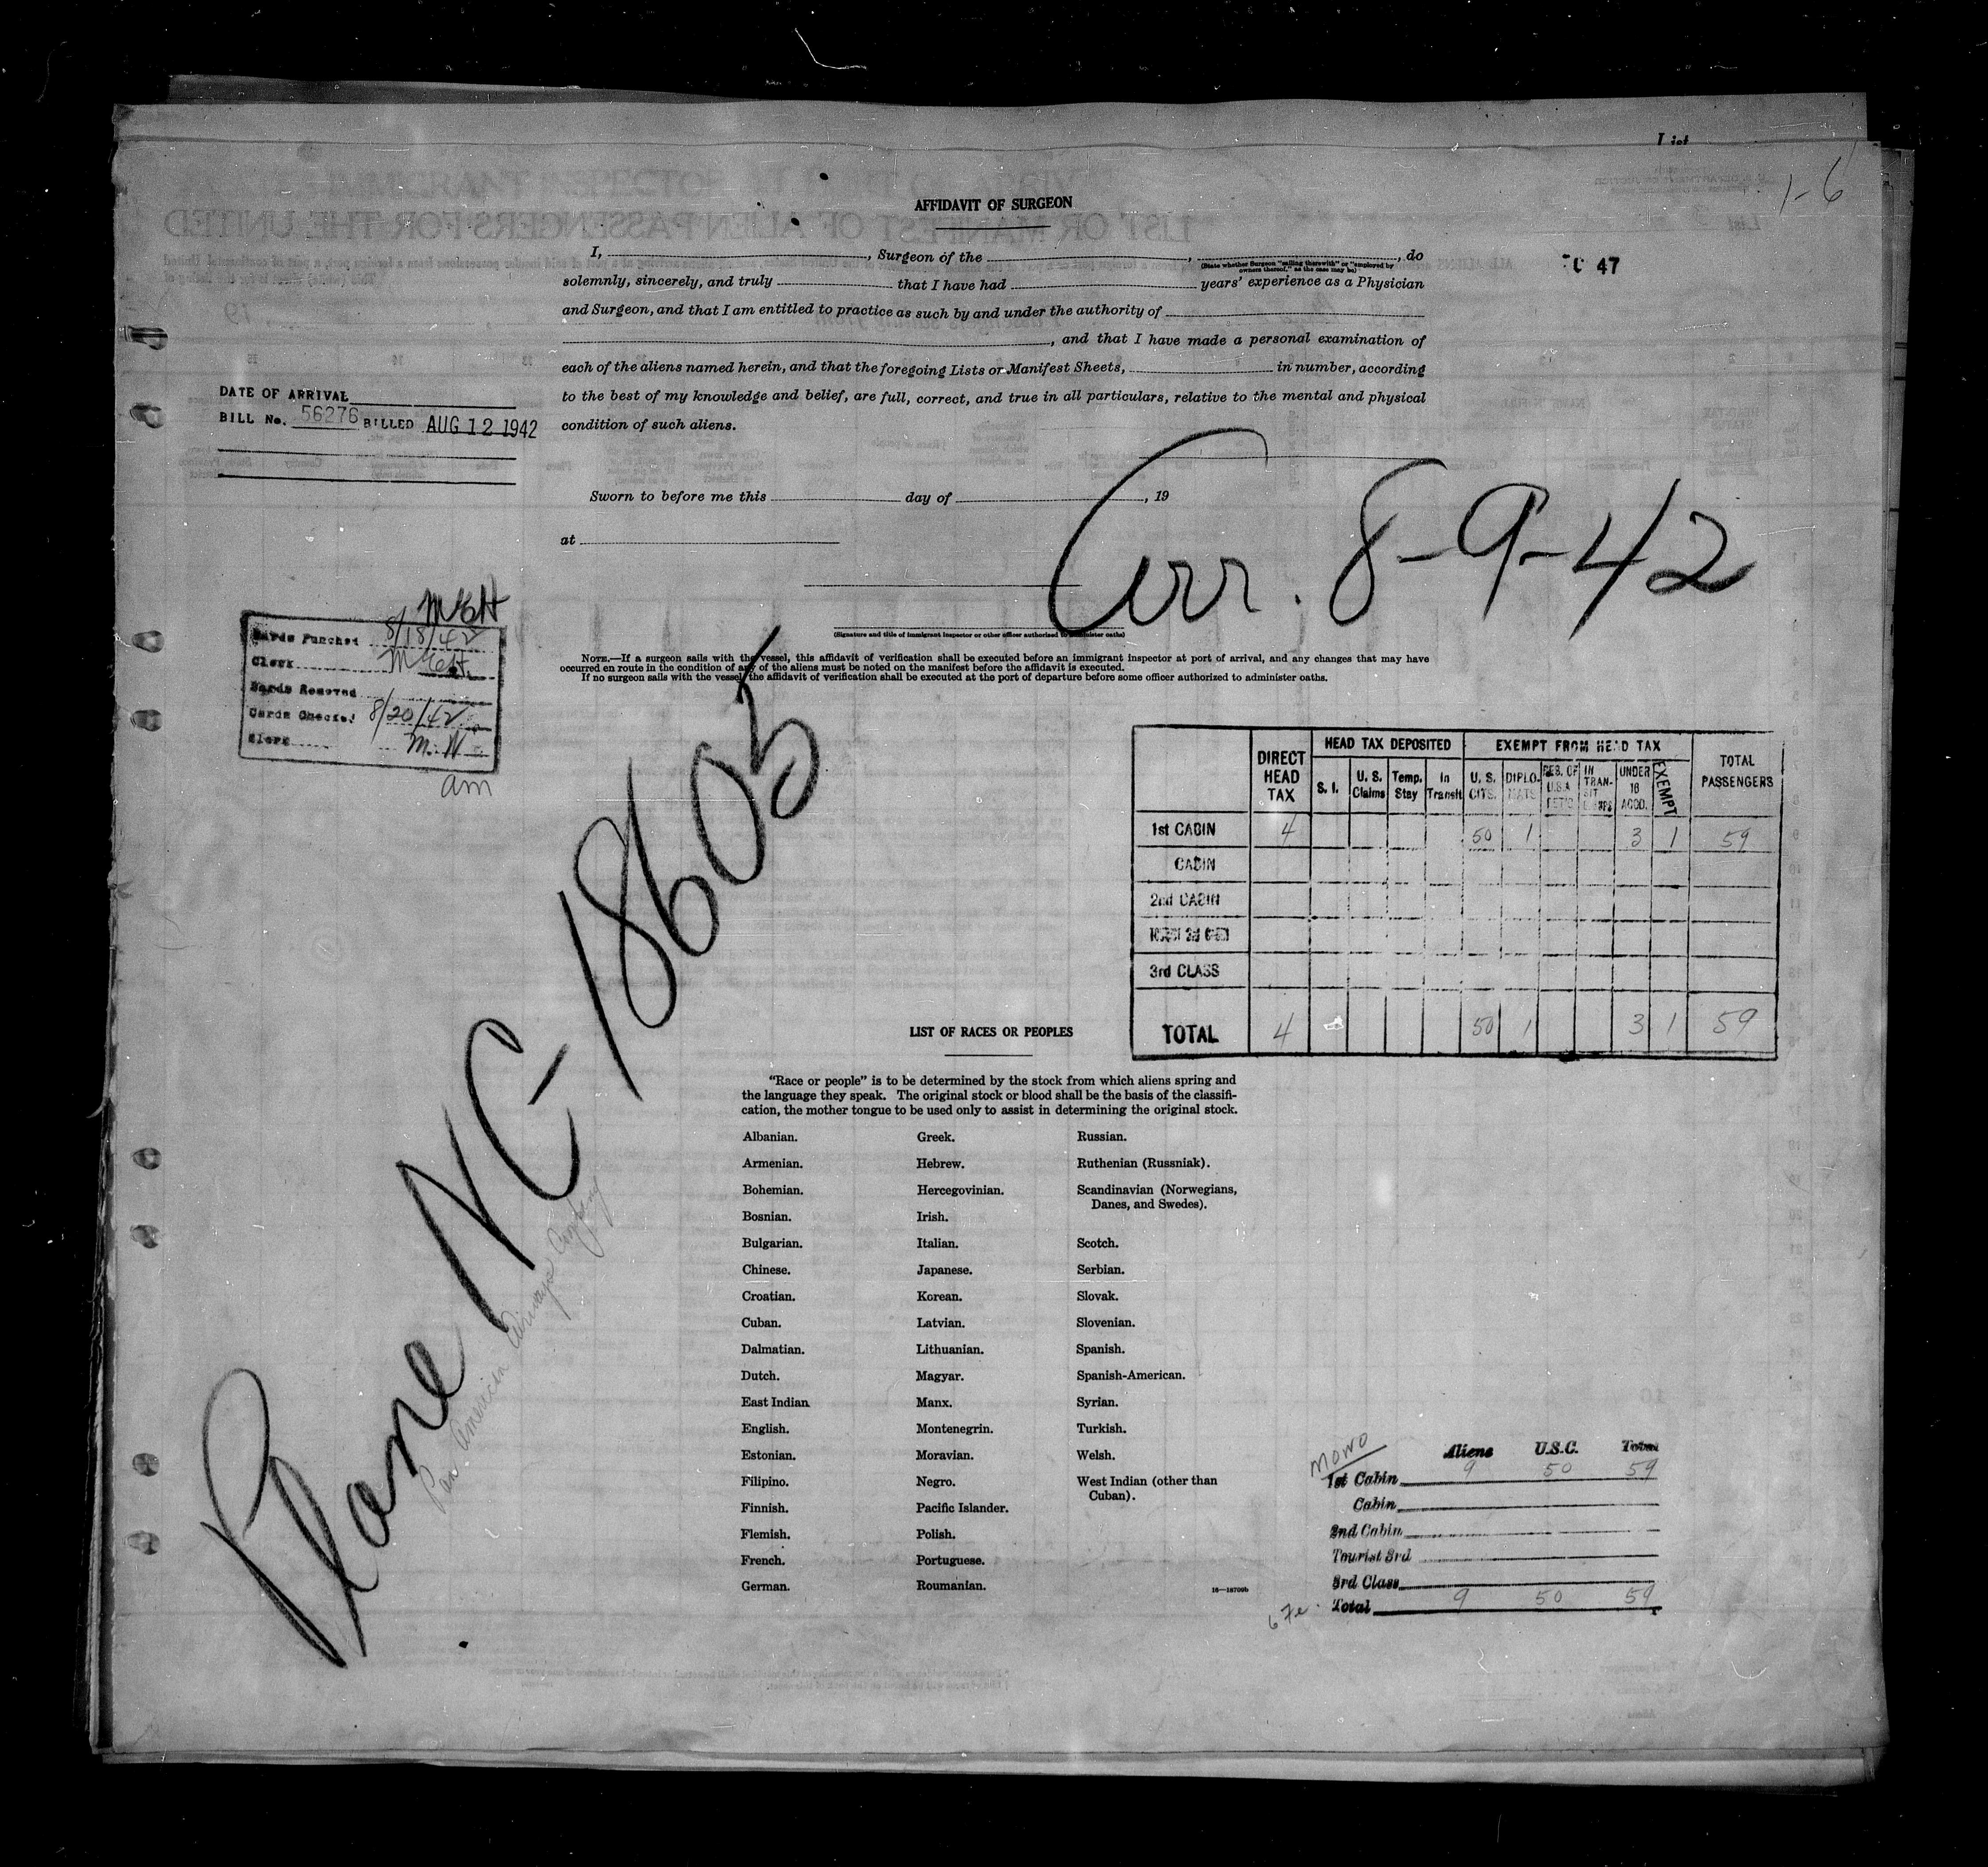 List
1-6
AFFIDAVIT OF SURGEON
I, , Surgeon of the , , do
(State whether Surgeon "sailing therewith" or "employed by
owners thereof," as the case may be)
47
solemnly, sincerely, and truly that I have had years' experience as a Physician
and Surgeon, and that I am entitled to practice as such by and under the authority of
, and that I have made a personal examination of
each of the aliens named herein, and that the foregoing Lists or Manifest Sheets, in number, according
to the best of my knowledge and belief, are full, correct, and true in all particulars, relative to the mental and physical
condition of such aliens.
DATE OF ARRIVAL
BILL No. 56276 BILLED AUG 12 1942
Sworn to before me this day of , 19
at
Arr. 8-9-42
(Signature and title of immigrant inspector or other officer authorized to administer oaths)
NOTE.—If a surgeon sails with the vessel, this affidavit of verification shall be executed before an immigrant inspector at port of arrival, and any changes that may have
occurred en route in the condition of any of the aliens must be noted on the manifest before the affidavit is executed.
If no surgeon sails with the vessel, the affidavit of verification shall be executed at the port of departure before some officer authorized to administer oaths.
Cards Punched 8/18/42
Clerk
Cards Removed
Cards Checked 8/20/42
Clerk M. W.
am
Plane NC-18605
Pan American Airways
DIRECT HEAD TAX
HEAD TAX DEPOSITED
EXEMPT FROM HEAD TAX
TOTAL PASSENGERS
S. I. U. S. Claims Temp. Stay In Transit U. S. CITS. DIPLOMATS RES. OF U.S.A. IN TRANSIT UNDER 16 ACCD. EXEMPT
1st CABIN 4 50 1 3 1 59
CABIN
2nd CABIN
3rd CLASS
TOTAL 4 50 1 3 1 59
LIST OF RACES OR PEOPLES
"Race or people" is to be determined by the stock from which aliens spring and
the language they speak. The original stock or blood shall be the basis of the classifi-
cation, the mother tongue to be used only to assist in determining the original stock.
Albanian.
Armenian.
Bohemian.
Bosnian.
Bulgarian.
Chinese.
Croatian.
Cuban.
Dalmatian.
Dutch.
East Indian
English.
Estonian.
Filipino.
Finnish.
Flemish.
French.
German.
Greek.
Hebrew.
Hercegovinian.
Irish.
Italian.
Japanese.
Korean.
Latvian.
Lithuanian.
Magyar.
Manx.
Montenegrin.
Moravian.
Negro.
Pacific Islander.
Polish.
Portuguese.
Roumanian.
Russian.
Ruthenian (Russniak).
Scandinavian (Norwegians,
Danes, and Swedes).
Scotch.
Serbian.
Slovak.
Slovenian.
Spanish.
Spanish-American.
Syrian.
Turkish.
Welsh.
West Indian (other than
Cuban).
16—18709b
MONO
Aliens U.S.C. Total
1st Cabin 9 50 59
Cabin
2nd Cabin
Tourist 3rd
3rd Class
Total 9 50 59